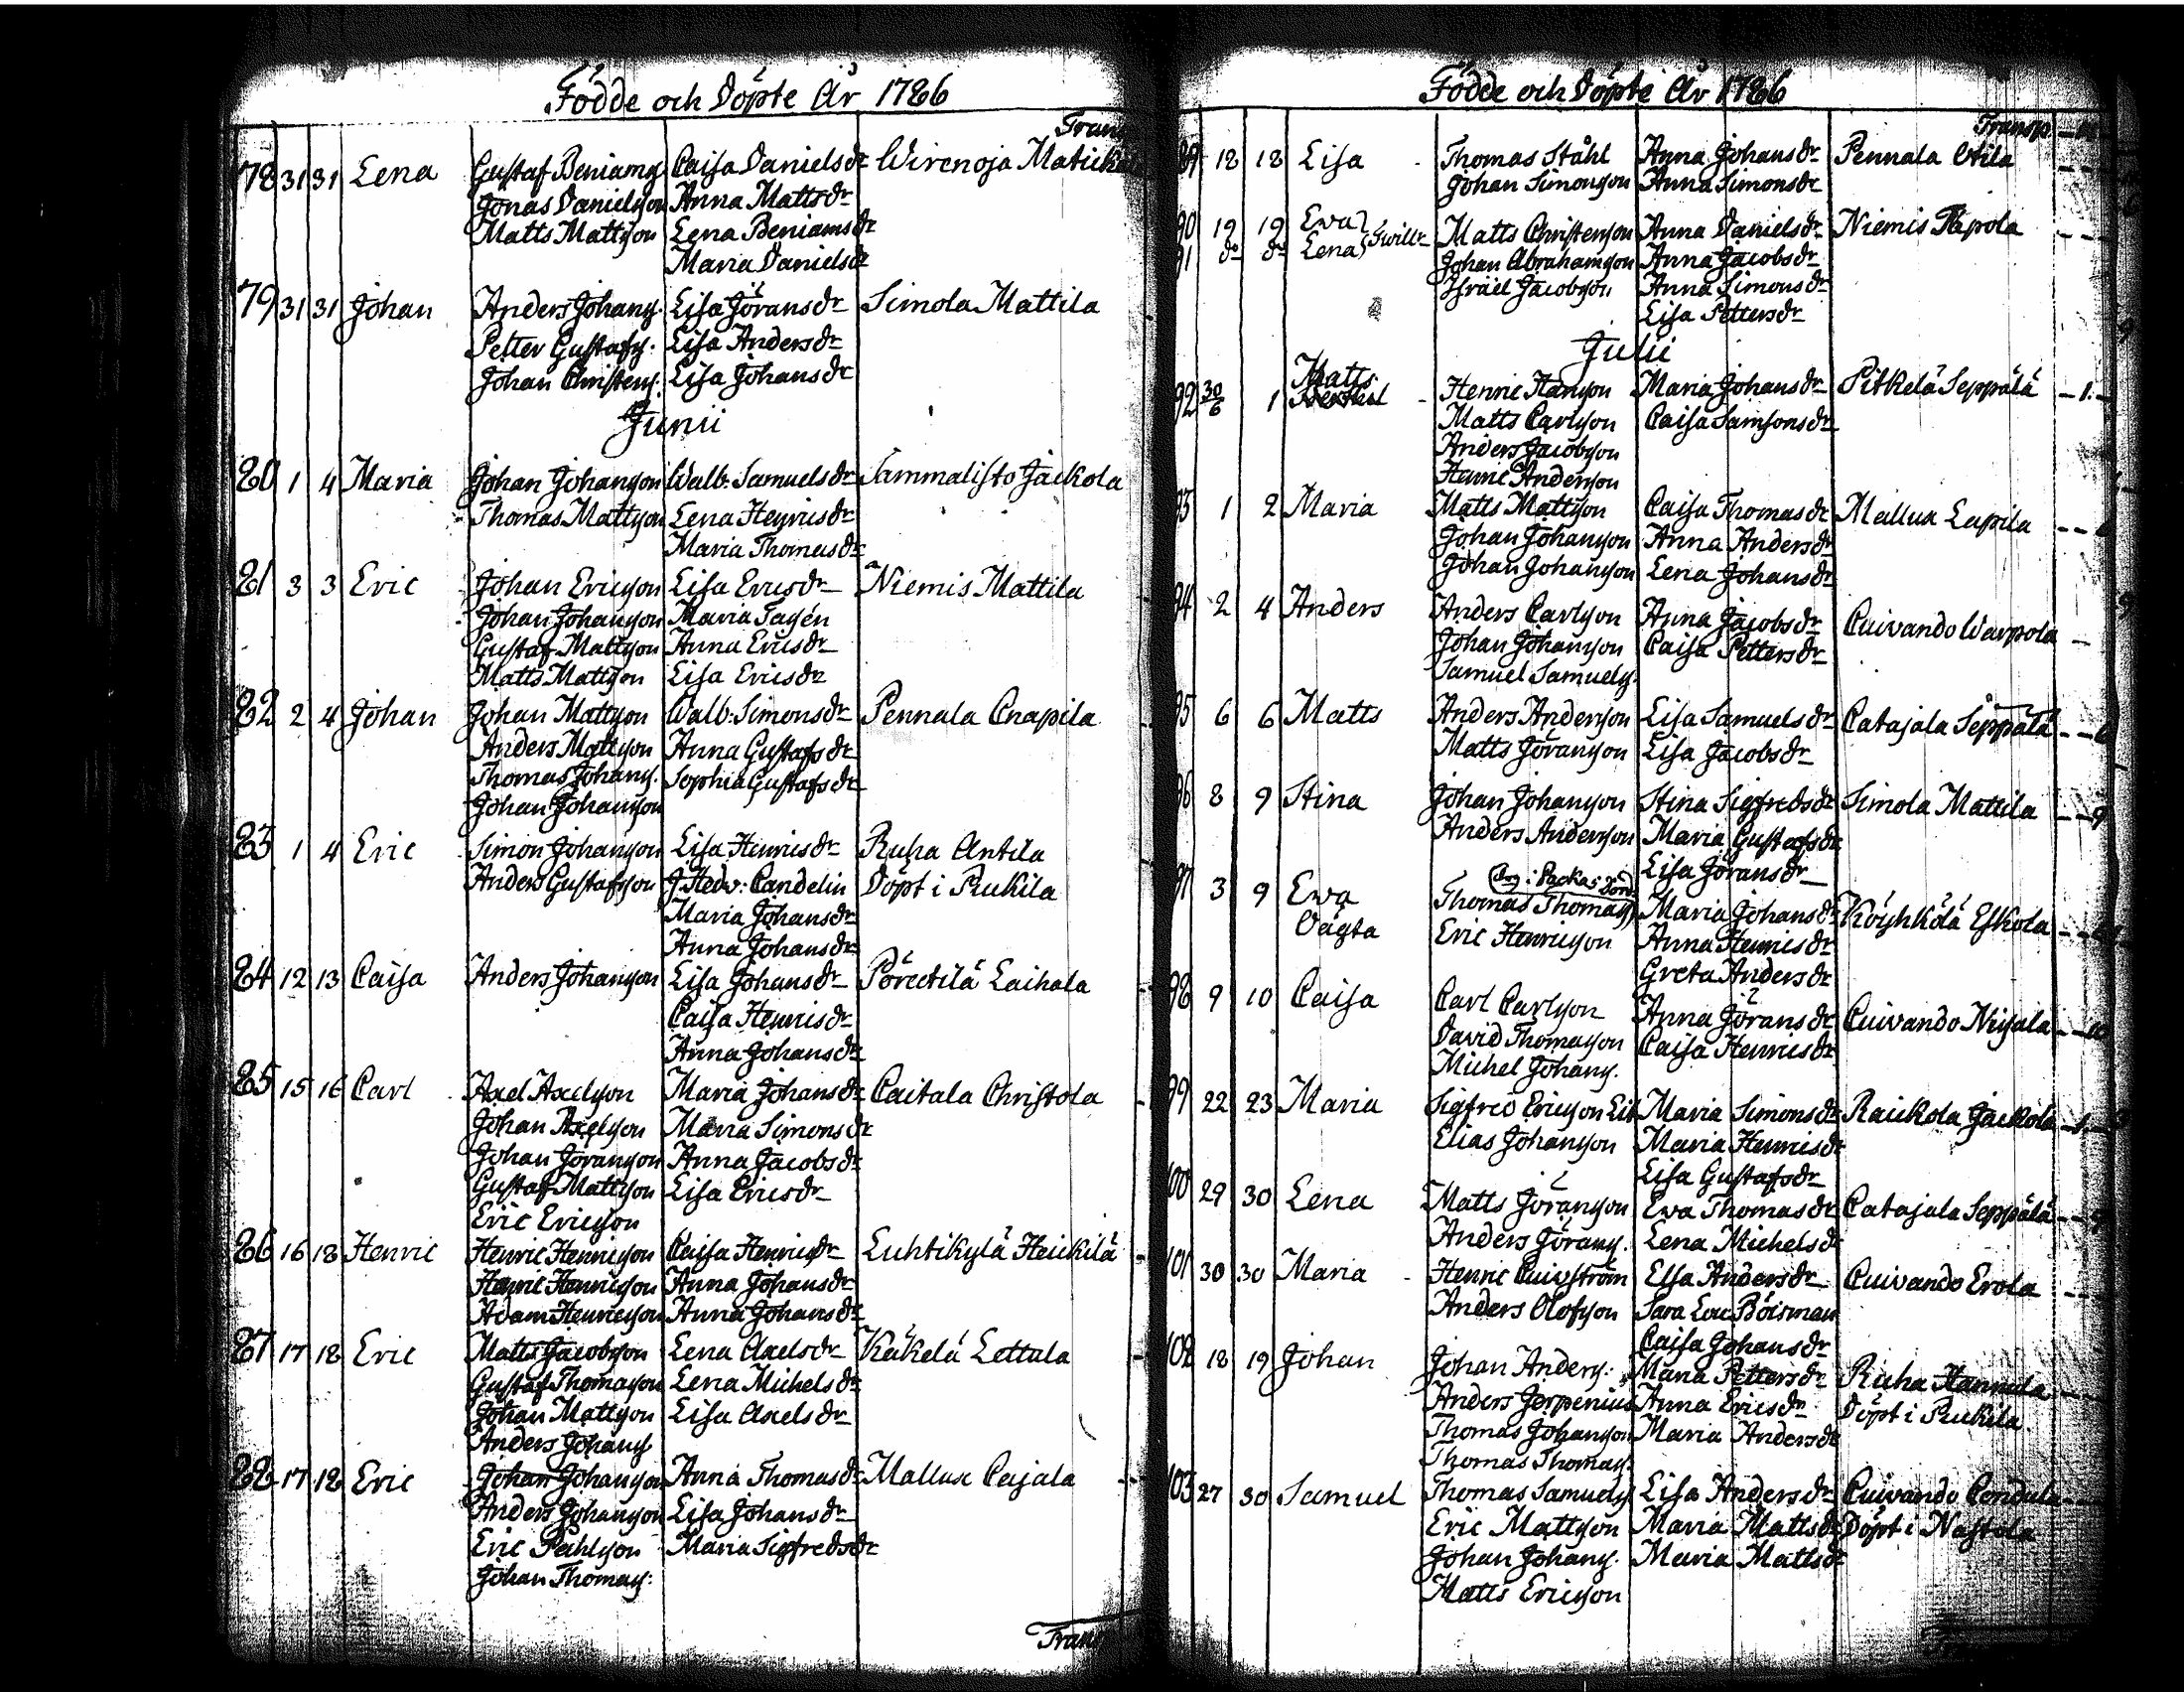 Födde och Döpte År 1786
Trans
78 31 31 Lena Gustaf Beniams. Caisa Danielsdr Wirenoja Matick
Jonas Danielsson Anna Mattsdr
Matts Mattsson Lena Beniamsdr
Maria Danielsdr
79 31 31 Johan Anders Johans. Lisa Jöransdr Simola Mattila
Petter Gustafs. Lisa Andersdr
Johan Christers. Lisa Johansdr
Junii
80 1 4 Maria Johan Johansson Walb: Samuelsdr Sammalisto Jackola
Thomas Mattsson Lena Henricsdr
Maria Thomasdr
81 3 3 Eric Johan Ericsson Lisa Ericsdr Niemis Mattila
Johan Johansson Maria Tagén
Gustaf Mattsson Anna Ericsdr
Matts Mattsson Lisa Ericsdr
82 2 4 Johan Johan Mattsson Walb: Simonsdr Pennala Cnapila
Anders Mattsson Anna Gustafsdr
Thomas Johans. Sophia Gustafsdr
Johan Johansson
83 1 4 Eric Simon Johansson Lisa Henricsdr Ruha Antila
Anders Gustafsson J. Hedv: Candelin Döpt i Pukila
Maria Johansdr
Anna Johansdr
84 12 13 Caisa Anders Johansson Lisa Johansdr Pörectilä Laihala
Caisa Henricsdr
Anna Johansdr
85 15 16 Carl Axel Axelsson Maria Johansdr Caitala Christola
Johan Axelsson Maria Simonsdr
Johan Göransson Anna Jacobsdr
Gustaf Mattsson Lisa Ericsdr
Eric Ericsson
86 16 18 Henric Henric Henricsson Caisa Henricsdr Luhtikylä Heickilä
Henric Henricsson Anna Johansdr
Adam Henricsson Anna Johansdr
87 17 18 Eric Matts Jacobsson Lena Axelsdr Käkelä Lettala
Gustaf Thomasson Lena Michelsdr
Johan Mattsson Lisa Axelsdr
Anders Johans.
88 17 18 Eric Johan Johansson Anna Thomasdr Mallux Cajala
Anders Johansson Lisa Johansdr
Eric Påhlsson Maria Sigfredsdr
Johan Thomas:
Trans
Födde och Döpte År 1786
Transp.
89 18 18 Lisa Thomas Ståhl Anna Johansdr Pennala Atila
Johan Simonsson Anna Simonsdr
90 19 19 Eva Matts Christersson Anna Danielsdr Niemis Tepola
91 do do Lena Gwill: Johan Abrahamsson Anna Jacobsdr
Israel Jacobsson Anna Simonsdr
Lisa Pettersdr
Julii
Matts
92 30/6 1 Henric Hansson Maria Johansdr Pitkelä Seppälä 1.
Matts Carlsson Caisa Samsonsdr
Anders Jacobsson
Henric Andersson
93 1 2 Maria Matts Mattsson Caisa Thomasdr Mallux Lapila
Johan Johansson Anna Andersdr
Johan Johansson Lena Johansdr
94 2 4 Anders Anders Carlsson Anna Jacobsdr Cuivando Warpola
Johan Johansson Caisa Pettersdr
Samuel Samuels.
95 6 6 Matts Anders Andersson Lisa Samuelsdr Catajala Seppälä
Matts Göransson Lisa Jacobsdr
96 8 9 Stina Johan Johansson Stina Sigfredsdr Simola Mattila 9
Anders Andersson Maria Gustafsdr
Lisa Jöransdr
97 3 9 Ewa Thomas Thomas. Maria Johansdr Köyhkölä Eskola
Oägta Eric Henricsson Anna Henricsdr
Greta Andersdr
98 9 10 Caisa Carl Carlsson Anna Göransdr Cuivando Nisala
David Thomasson Caisa Henricsdr
Michel Johans.
99 22 23 Maria Sigfred Ericsson Lib Maria Simonsdr Raickola Jackola
Elias Johansson Maria Henricsdr
Lisa Gustafsdr
100 29 30 Lena Matts Göransson Ewa Thomasdr Catajala Seppälä
Anders Görans. Lena Michelsdr
101 30 30 Maria Henric Cuivström Elsa Andersdr Cuivando Erola
Anders Olofsson Sara Lov: Böisman
Caisa Johansdr
102 18 19 Johan Johan Anders: Maria Pettersdr Ruha Hannula
Anders Jerpenius Anna Ericsdr Döpt i Pukila
Thomas Johansson Maria Andersdr
Thomas Thomas.
103 27 30 Samuel Thomas Samuels. Lisa Andersdr Cuivando Condula
Eric Mattsson Maria Mattsdr Döpt i Nastola
Johan Johans. Maria Mattsdr
Matts Ericsson